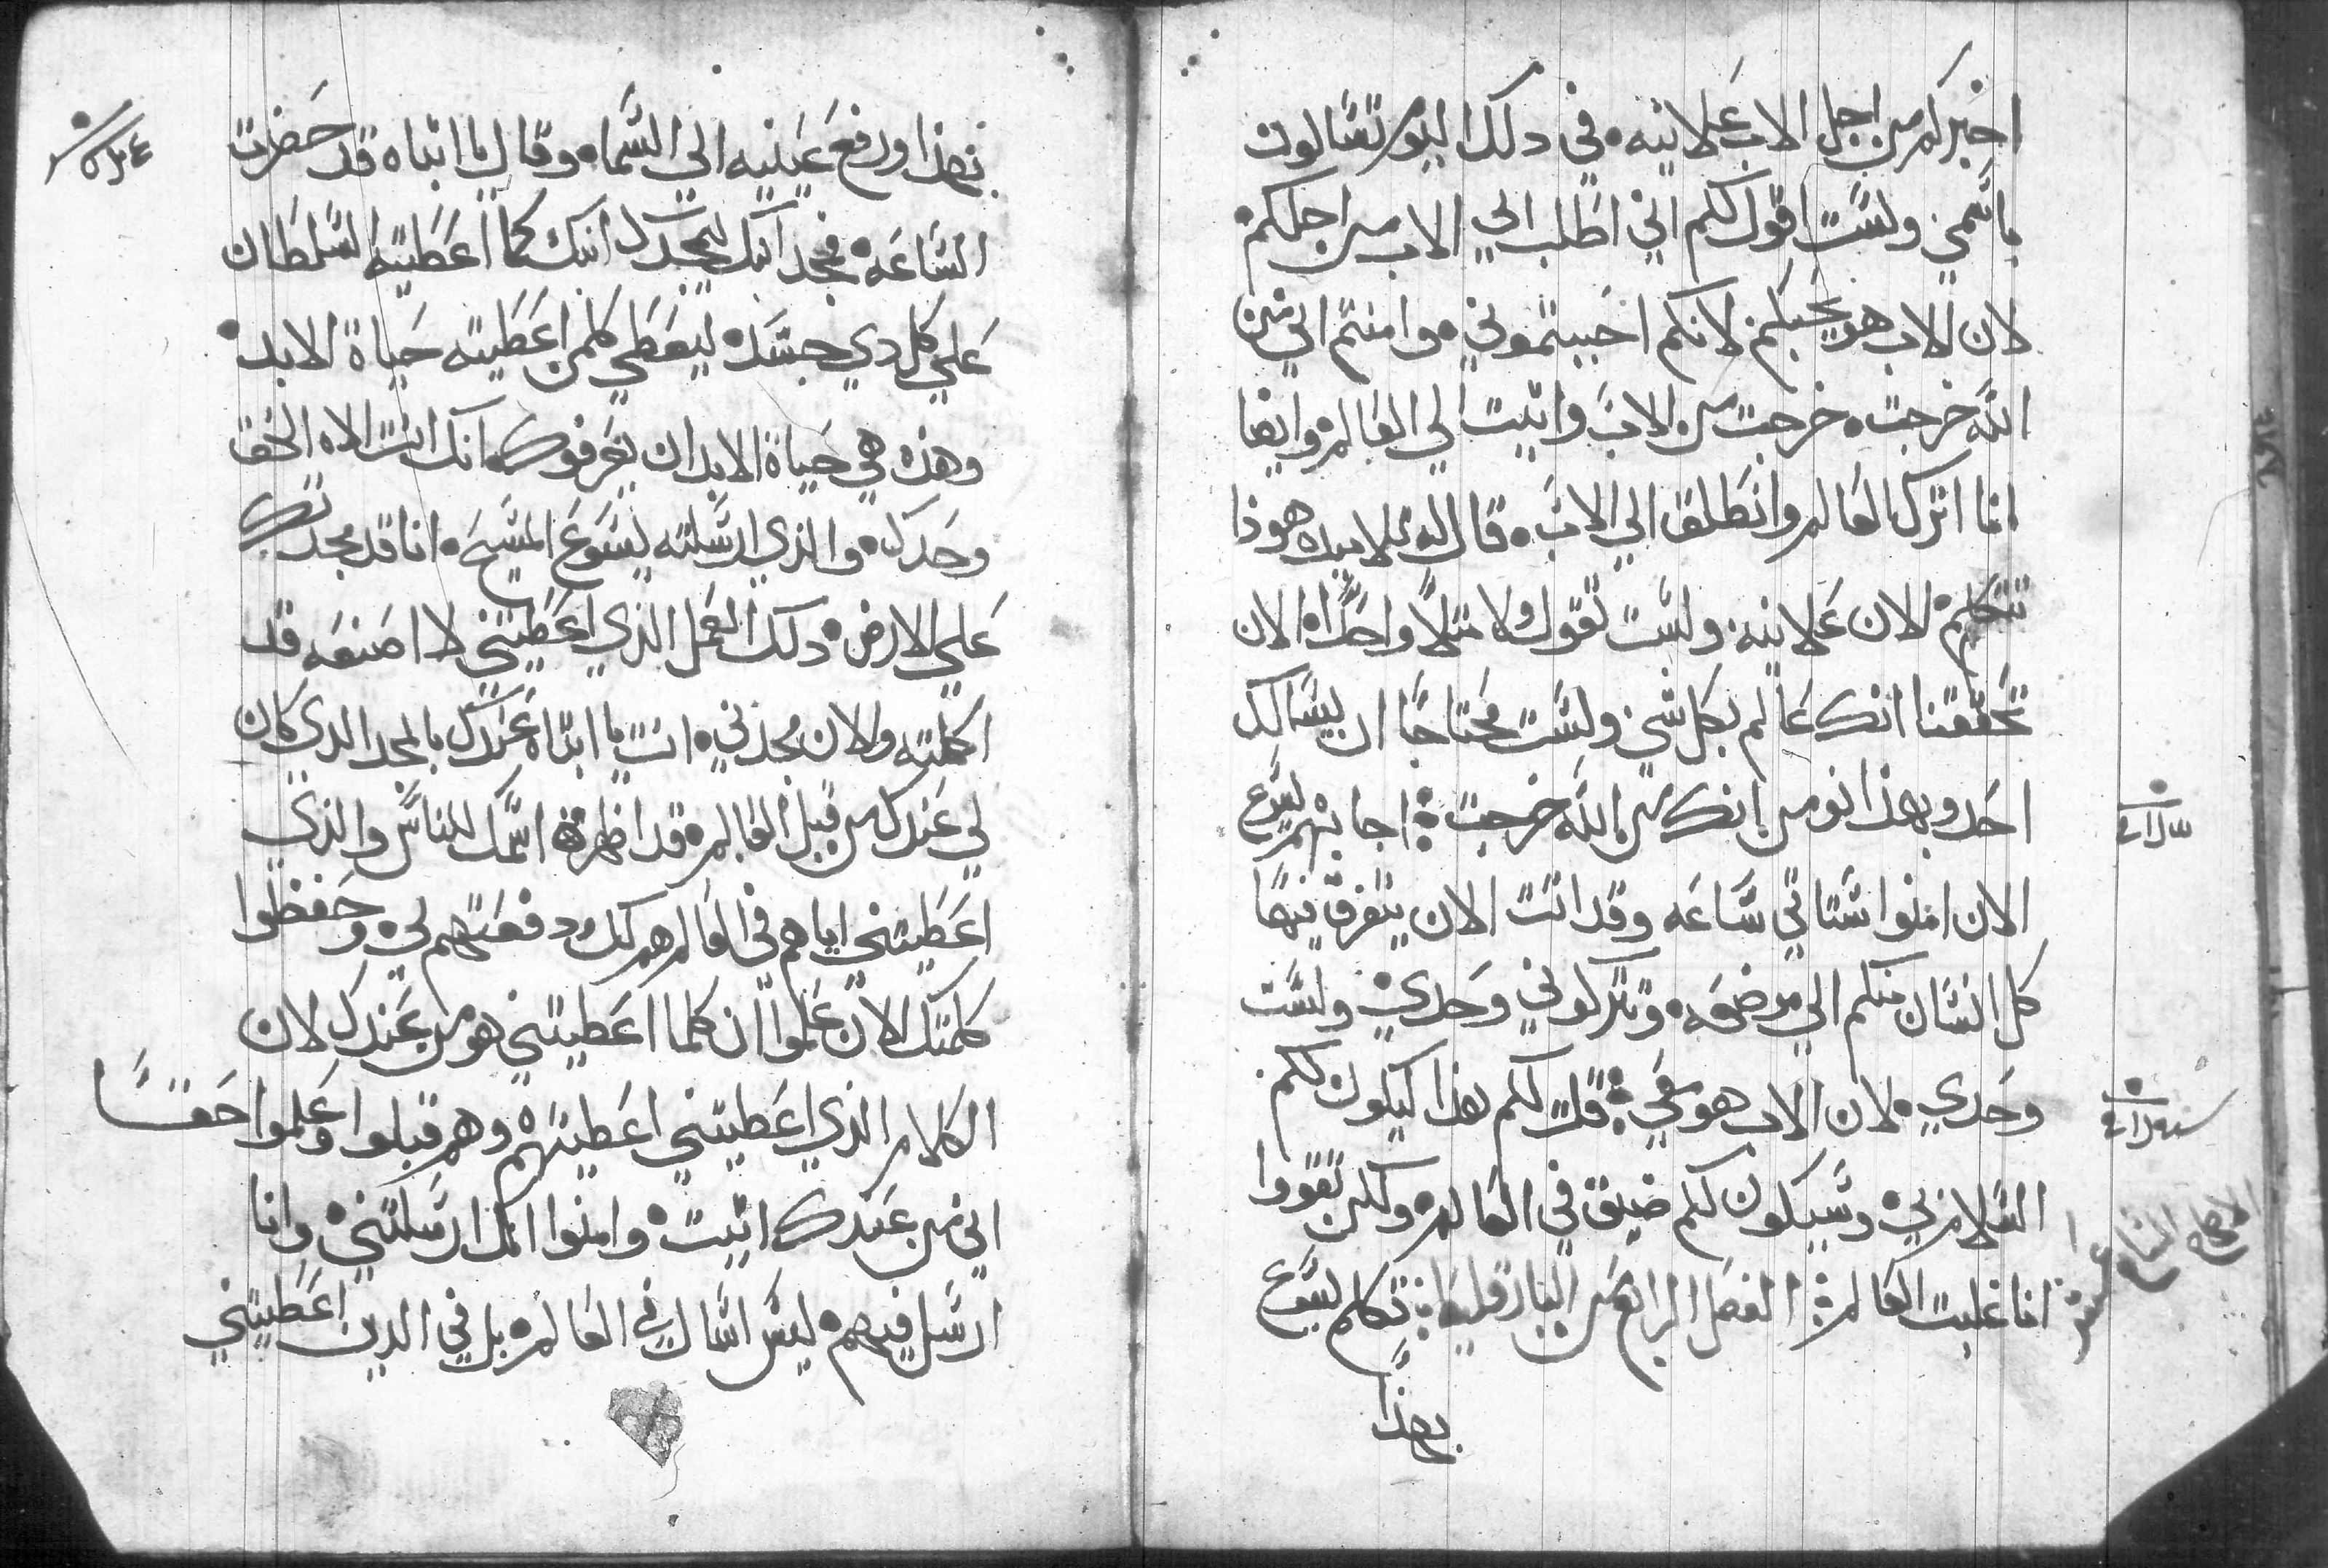 اخبركم من اجل الاب علانيه. في دلك اليوم تسالون
باسمي ولست اقول لكم اني اطلب الي الاب من اجلكم.
لان الاب هو يحبكم لانكم احببتموني. وامنتم اني من
الله خرجت. خرجت من الاب واتيت الي العالم. وايضا
انا اترك العالم وانطلق الي الاب. قال له تلاميده هوذا
تتكلم الان علانيه. ولست تقول ولا مثلاً واحداً. الان
تحققنا انك عالم بكل شي ولست محتاجاً ان يسالك
احد وبهذا نومن انك من الله خرجت. اجابهم يسوع
الان امنوا ستاتي ساعه وقد اتت الان يتفرق فيها
كل انسان منكم الي موضعه. وتتركوني وحدي. ولست
وحدي. لان الاب هو معي. قلت لكم هذا ليكون لكم
السلام بي. وسيكون لكم ضيق في العالم. ولكن تقووا
انا غلبت العالم. الفصل الرابع من البارقليط. تكلم يسوع
بهذا
الاصحاح السابع عشر
بهذا ورفع عينيه الي السماء. وقال يا ابتاه قد حضرت
الساعه. فمجد ابنك ليمجدك ابنك كما اعطيته السلطان
علي كل دي جسد. ليعطي كلمن اعطيته حياة الابد.
وهذه هي حياة الابد ان يعرفوك. انك انت الاه الحق
وحدك. والذي ارسلته يسوع المسيح. انا قد مجدتك
علي الارض. دلك العمل الذي اعطيتني لاصنعه قد
اكملته والان مجدني. انت يا ابتاه عندك بالمجد الدي كان
لي عندك من قبل العالم. قد اظهرت اسمك للناس والذي
اعطيتني اياهم في العالم هم لك ودفعتهم لي. وحفظوا
كلمتك الان علموا ان كلما اعطيتني هو من عندك لان
الكلام الذي اعطيتني اعطيتهم. وهم قبلوا وعلموا حقاً
اني من عندك اتيت. وامنوا انك ارسلتني. وانا
ارسل فيهم. ليس اسال في العالم. بل في الدين اعطيتني